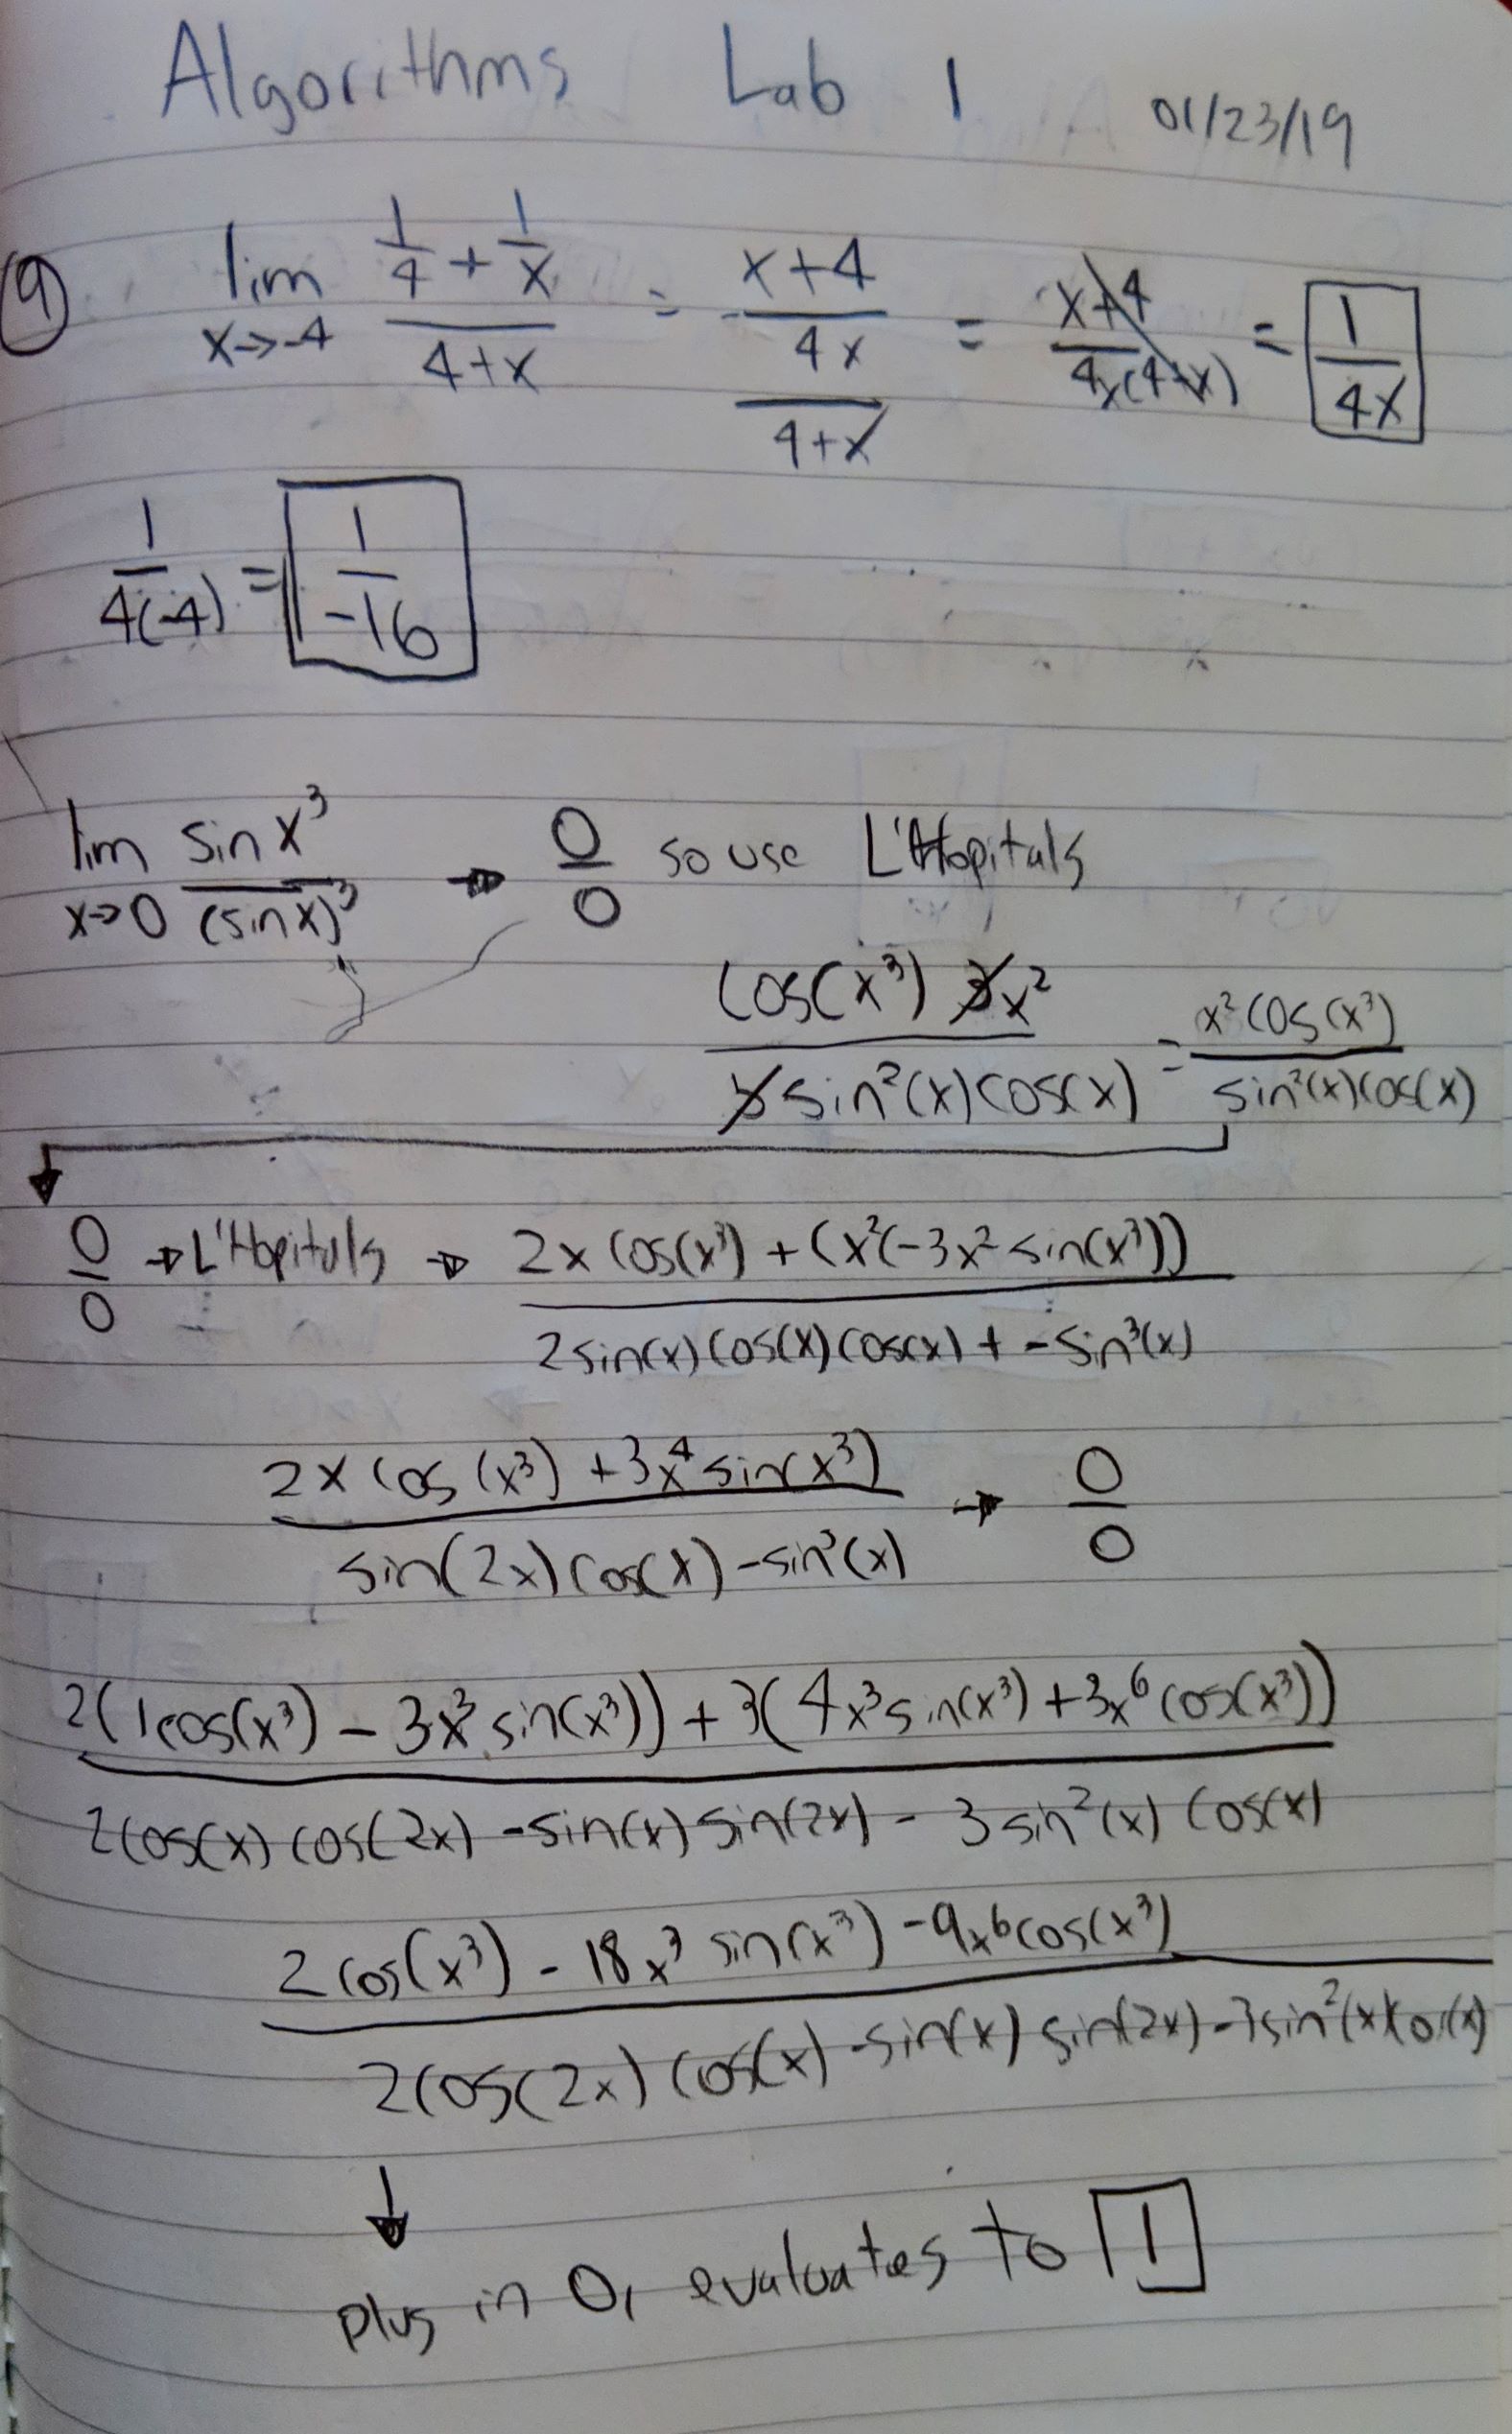 Algorithms Lab 1 01/23/19
(9) lim x→-4 (1/4 + 1/x)/(4+x) = ((x+4)/(4x))/(4+x) = (x+4)/(4x(4+x)) = 1/(4x)
1/(4(-4)) = 1/(-16)
lim x→0 sin x³/(sin x)³ → 0/0 so use L'Hopitals
(cos(x³) 3x²)/(3 sin²(x) cos(x)) = (x² cos(x³))/(sin²(x) cos(x))
0/0 → L'Hopitals → (2x cos(x³) + (x²(-3x² sin(x³)))/(2 sin(x) cos(x) cos(x) + - sin³(x))
(2x cos(x³) + 3x⁴ sin(x³))/(sin(2x) cos(x) - sin³(x)) → 0/0
(2(1cos(x³) - 3x³ sin(x³)) + 3(4x³ sin(x³) + 3x⁶ cos(x³)))/(2cos(x) cos(2x) - sin(x) sin(2x) - 3 sin²(x) cos(x))
(2 cos(x³) - 18x³ sin(x³) - 9x⁶ cos(x³))/(2cos(2x) cos(x) - sin(x) sin(2x) - 3sin²(x)cos(x))
↓
plug in 0, evaluates to 1